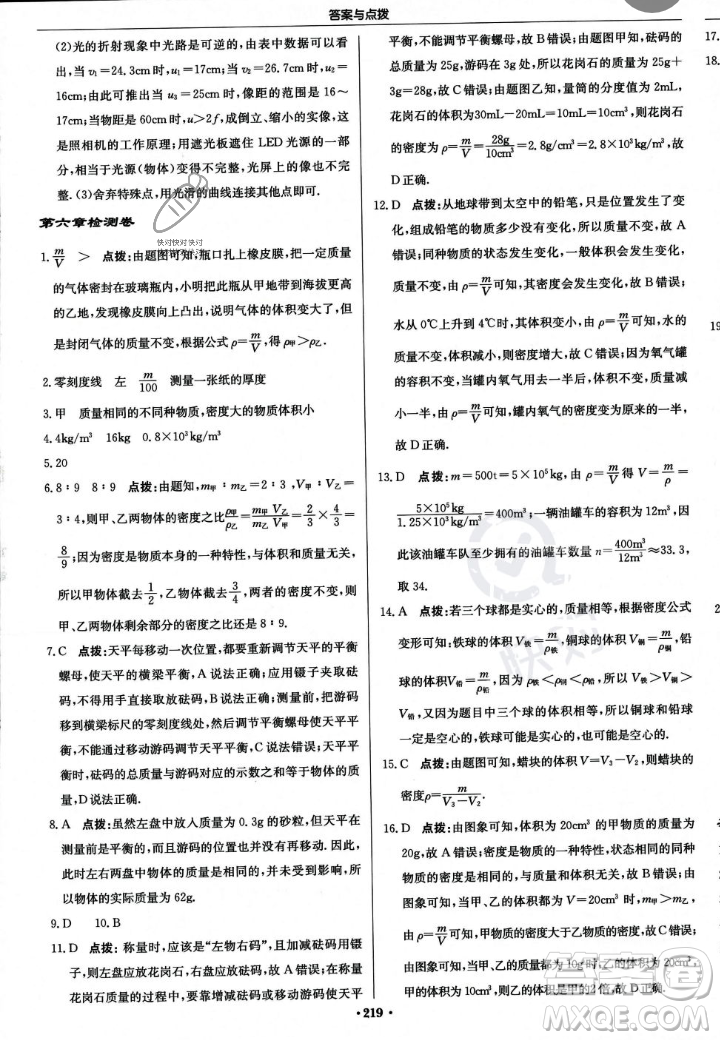 答案与点拨
(2)光的折射现象中光路是可逆的，由表中数据可以看
出，当 v₁=24.3cm时，u₁=17cm；当 v₂=26.7cm时，u₂=
16cm；由此推出当 u₃=25cm时，像距的范围是 16～
17cm；当物距是 60cm时，u>2f，成倒立、缩小的实像，这
是照相机的工作原理；用遮光板遮住LED光源的一部
分，相当于光源(物体)变得不完整，光屏上的像也不完
整。(3)舍弃特殊点，用光滑的曲线连接其余点即可。
第六章检测卷
快对快对快对
1. m/V　>　点拨：由题图可知，瓶口扎上橡皮膜，把一定质量
的气体密封在玻璃瓶内，小明把此瓶从甲地带到海拔更高
的乙地，发现橡皮膜向上凸出，说明气体的体积变大了，但
是封闭气体的质量不变，根据公式 ρ=m/V，得 ρ甲>ρ乙。
2. 零刻度线　左　m/100　测量一张纸的厚度
3. 甲　质量相同的不同种物质，密度大的物质体积小
4. 4kg/m³　16kg　0.8×10³kg/m³
5. 20
6. 8∶9　8∶9　点拨：由题知，m甲∶m乙=2∶3，V甲∶V乙=
3∶4，则甲、乙两物体的密度之比ρ甲/ρ乙=m甲/m乙 V乙/V甲=2/3×4/3=
8/9；因为密度是物质本身的一种特性，与体积和质量无关，
所以如果甲物体截去1/2，乙物体截去3/4，两者的密度不变，即
甲、乙两物体剩余部分的密度之比还是 8∶9。
7. C　点拨：天平每移动一次位置，都要重新调节天平的平衡
螺母，使天平的横梁平衡，A说法正确；应用镊子夹取砝
码，不得用手直接取放砝码，B说法正确；测量前，把游码
移到横梁标尺的零刻度线处，然后调节平衡螺母使天平平
衡，不能通过移动游码调节天平平衡，C说法错误；天平平
衡时，砝码的总质量与游码对应的示数之和等于物体的质
量，D说法正确。
8. A　点拨：虽然左盘中放入质量为 0.3g的砂粒，但天平在
测量前是平衡的，而且游码的位置也没有发生变化，因此
此时左右两盘中物体的质量是相同的，并未受到影响，所
以物体的实际质量为 62g。
9. D　10. B
11. D　点拨：称量时，应该是“左物右码”，且加减砝码用镊
子，则左盘应放花岗石，右盘应放砝码，故 A错误；在称量
花岗石质量的过程中，要靠增减砝码或移动游码使天平
平衡，不能调节平衡螺母，故 B错误；由题图甲知，砝码的
总质量为 25g，游码在 3g处，所以花岗石的质量为 25g+
3g=28g，故 C错误；由题图乙知，量筒的分度值为 2mL，
花岗石的体积为30mL－20mL=10mL=10cm³，则花岗石
的密度为 ρ=m/V=28g/10cm³=2.8g/cm³=2.8×10³kg/m³，故
D正确。
12. D　点拨：从地球带到太空中的铅笔，只是位置发生了变
化，组成铅笔的物质多少没有变化，所以质量不变，故 A
错误；同种物质的状态发生变化，一般体积会发生变化，
但质量不变，由 ρ=m/V可知，其密度会发生变化，故 B错误；
水从0℃上升到 4℃时，其体积变小，由 ρ=m/V可知，水的
质量不变，体积减小，则密度变大，故 C错误；因氧气罐
的容积不变，当罐内氧气用去一半后，体积不变，质量
减小一半，由 ρ=m/V可知，罐内氧气的密度变为原来的一半，
故 D正确。
13. D　点拨：m=500t=5×10⁵kg，由 ρ=m/V得 V=m/ρ=
5×10⁵kg/1.25×10³kg/m³=400m³；一辆油罐车的容积为 12m³，因
此该油罐车队至少拥有的油罐车数量 n=400m³/12m³≈33.3，
取 34。
14. A　点拨：若三个球都是实心的，质量相等，根据密度公式
变形可知：铁球的体积V铁=m/ρ铁，铜球的体积V铜=m/ρ铜，铅
球的体积V铅=m/ρ铅，因为 ρ铁<ρ铜<ρ铅，所以V铁>V铜>
V铅，而题目中三个球的体积相等，所以铜球和铅球
一定是空心的，铁球可能是实心的，也可能是空心的。
15. C　点拨：由题图可知，蜡块的体积为 V=V₃－V₂，蜡块的
密度ρ=m/V₃－V₂。
16. D　点拨：由图象可知，体积为 20cm³ 的甲物质的质量为
20g，故 A错误；密度是物质的一种特性，状态相同的同种
物质的密度是不变的，与质量和体积无关，故 B错误；由
图象可知，当甲、乙的体积都为 V=20cm³时，m甲>m乙，
由 ρ=m/V可知，甲的密度大于乙的密度，故 C错误；
由图象可知，当甲、乙的质量都为 10g时，V甲=10cm³，V乙
=20cm³，则乙的体积是甲的2倍，故D正确。
17.
18.
19
2
· 219 ·
快对
MXQE.COM